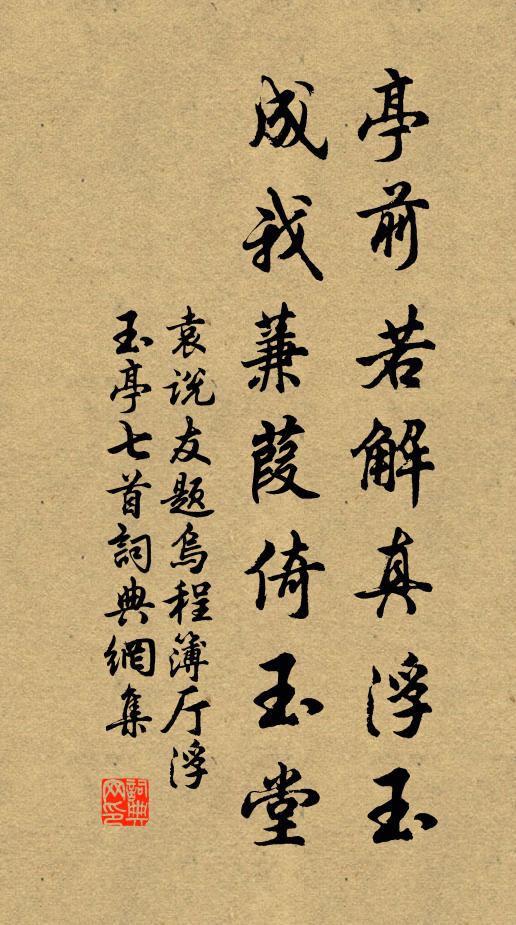 亭前若解真浮玉
成我蒹葭倚玉堂
袁说友题乌程簿厅浮
玉亭七首詞典網集
詞典网印